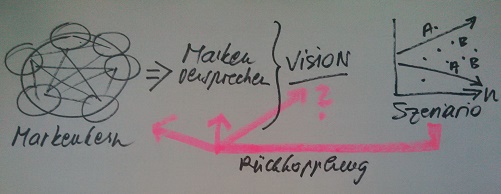 Marken
versprechen
VISION
?
A
B
A
B
n
Szenario
Markenkern
Rückkopplung